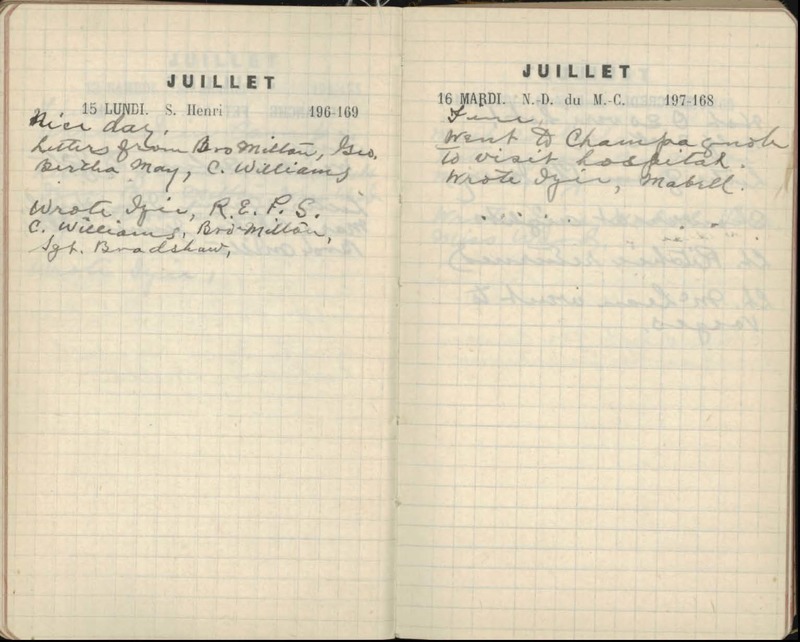 JUILLET
15 LUNDI. S. Henri 196-169
Nice day.
Letters from Bro Milton, Geo,
Bertha May, C. Williams
Wrote R.E.P.S.
C. Williams, Bro Milton,
Sgt. Bradshaw,
JUILLET
16 MARDI. N.-D. du M.-C. 197-168
Fine.
Went to Champagnole
to visit hospital.
Wrote Mabell.